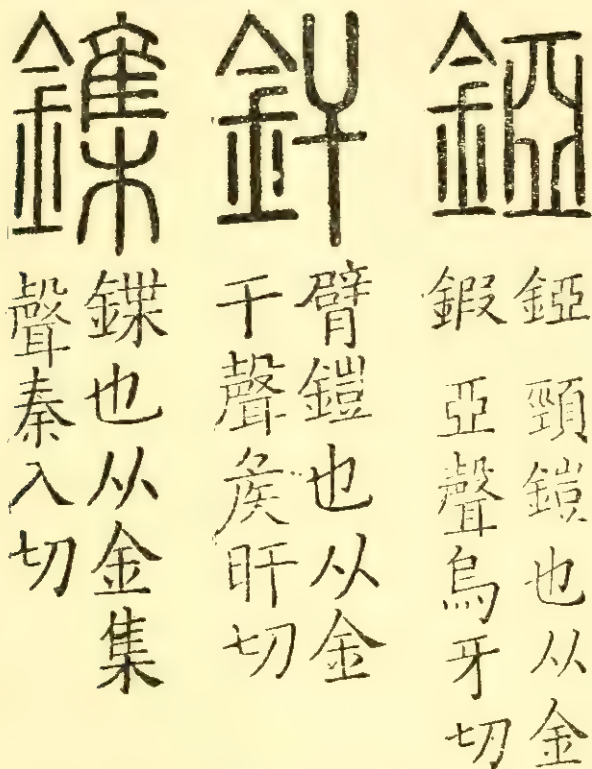 錏
錏 頸鎧也从金
鍜 亞聲烏牙切
釬
臂鎧也从金
干聲矦旰切
鏶
鍱也从金集
聲秦入切